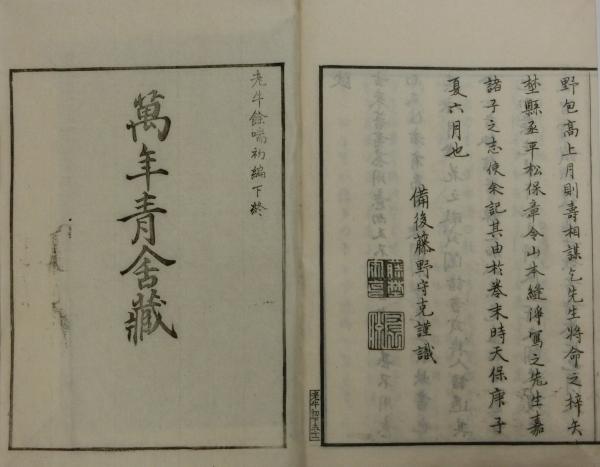 野包高上月則壽相謀乞先生將命之梓矢
埜縣丞平松保章令山本縫淨寫之先生嘉
諸子之志使余記其由於卷末時天保庚子
夏六月也
備後藤野守克謹識
老牛餘喘初編下終
萬年青舍藏